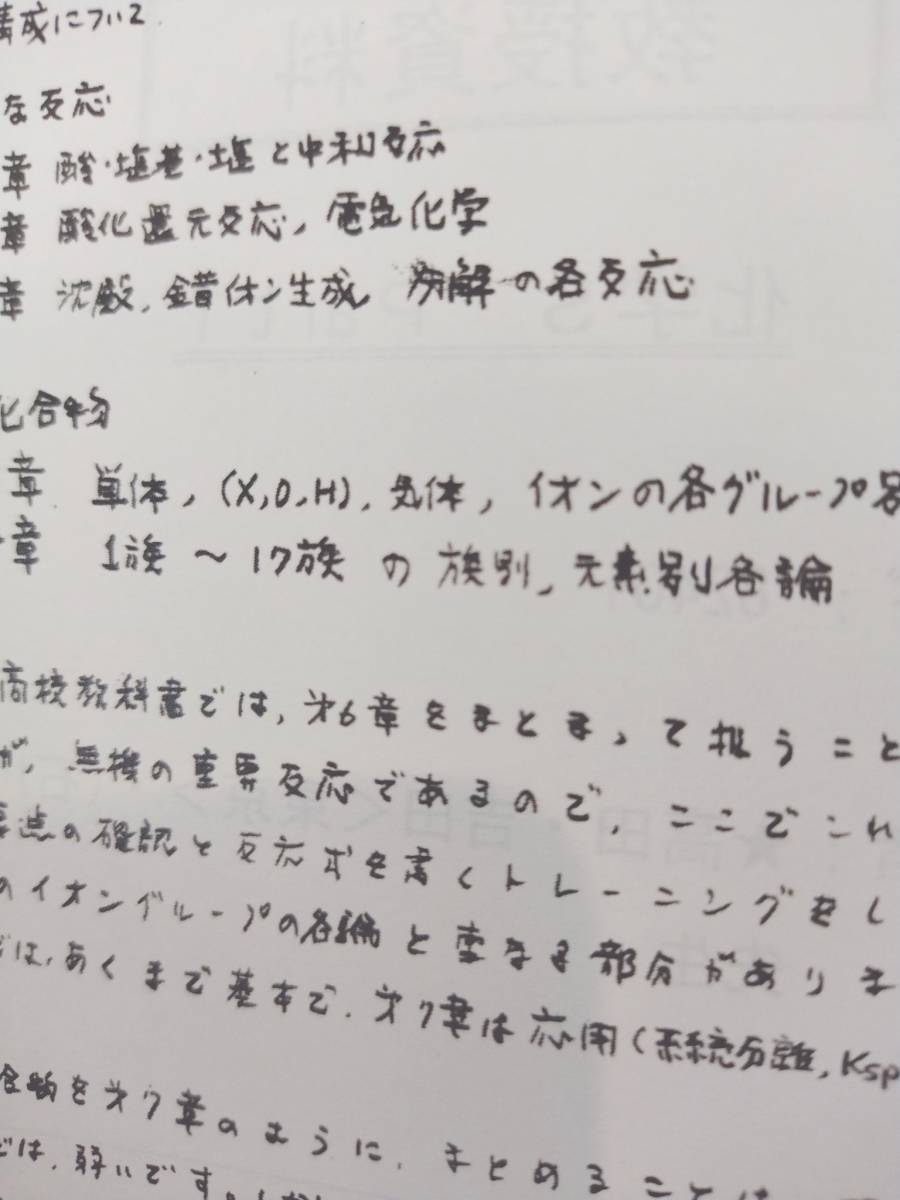 構成について
な反応
章 酸・塩基・塩と中和反応
章 酸化還元反応, 電気化学
章 沈殿, 錯イオン生成, 分解の各反応
化合物
章 単体, (X,O,H), 気体, イオンの各グループ別
章 1族 〜 17族 の 族別, 元素別各論
高校教科書では, 第6章をまとまって扱うこと
が, 無機の重要反応であるので, ここでこれ
要点の確認と反応式を書くトレーニングをし
のイオングループの各論と重なる部分がありま
では, あくまで基本で, 第7章は応用(系統分離, Ksp
合物を第7章のように, まとめることは
では, 弱いです。
教授資料